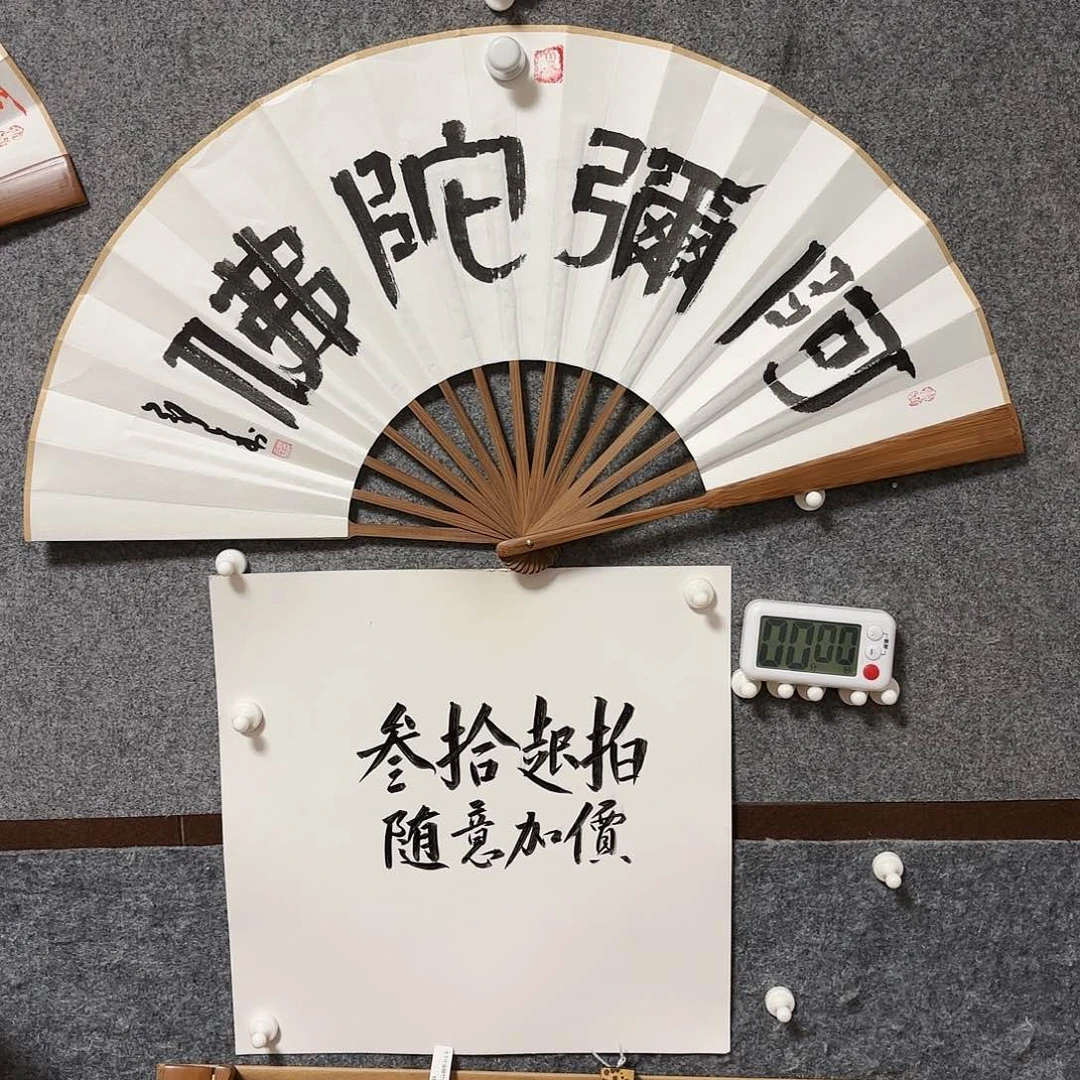 阿彌陀佛
叁拾起拍
随意加價
00 00